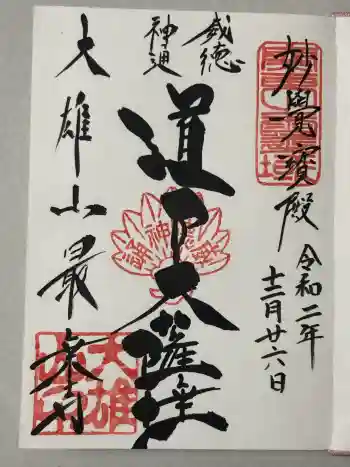 妙覺寳殿
令和二年
十二月廿六日
威徳
神通
道了大薩埵
大雄山最乗寺